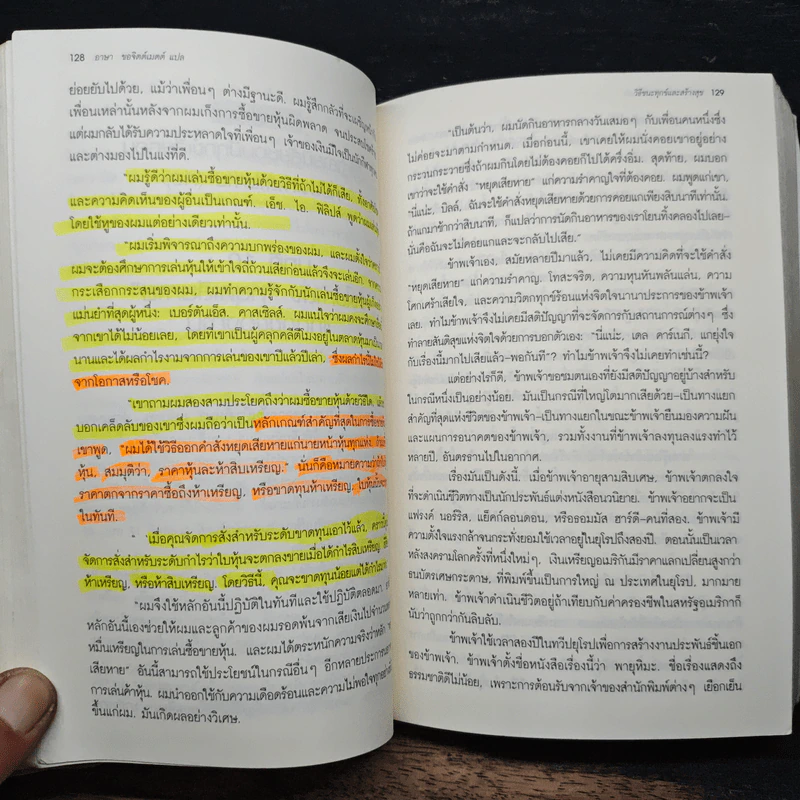 128 ภาษา ขอจิตต์เมตต์ แปล
ย่อยยับไปด้วย, แม้ว่าเพื่อนๆ ต่างมีฐานะดี. ผมรู้สึกกลัวที่จะเผชิญหน้า
เพื่อนเหล่านั้นหลังจากผมเก็งการซื้อขายหุ้นผิดพลาด จนประสบ
แต่ผมกลับได้รับความประหลาดใจที่เพื่อนๆ เจ้าของเงินมิใช่เป็นนักกีฬา
และต่างมองไปในแง่ที่ดี.
"ผมรู้ดีว่าผมเล่นซื้อขายหุ้นด้วยวิธีที่ถ้าไม่ได้ก็เสีย,
และความคิดเห็นของผู้อื่นเป็นเกณฑ์. เอ็ช. ไอ. ฟิลิปส์ พูดว่าผม
โดยใช้หูของผมแต่อย่างเดียวเท่านั้น.
"ผมเริ่มพิจารณาถึงความบกพร่องของผม, และผมตั้งใจว่า
ผมจะต้องศึกษาการเล่นหุ้นให้เข้าใจถี่ถ้วนเสียก่อนแล้วจึงจะเล่นอีก.
กระเสือกกระสนของผม, ผมทำความรู้จักกับนักเล่นซื้อขายหุ้น
แม่นยำที่สุดผู้หนึ่ง: เบอร์ตันเอ็ส. คาสเซิลส์. ผมแน่ใจว่าผมคงจะศึกษา
จากเขาได้ไม่น้อยเลย, โดยที่เขาเป็นผู้คลุกคลีตีโมงอยู่ในตลาดหุ้นมา
นานและได้ผลกำไรงามจากการเล่นของเขาปีแล้วปีเล่า, ซึ่งผลกำไรนี้
จากโอกาสหรือโชค.
"เขาถามผมสองสามประโยคถึงว่าผมซื้อขายหุ้นด้วยวิธีใด,
บอกเคล็ดลับของเขาซึ่งผมถือว่าเป็นหลักเกณฑ์สำคัญที่สุดในการซื้อขาย
เขาพูด, "ผมได้ใช้วิธีออกคำสั่งหยุดเสียหายแก่นายหน้าหุ้นทุกแห่ง.
หุ้น, สมมุติว่า, ราคาหุ้นละห้าสิบเหรียญ." นั่นก็คือหมายความว่า
ราคาตกจากราคาซื้อถึงห้าเหรียญ, หรือขาดทุนห้าเหรียญ, ใบหุ้นนั้น
ในทันที.
"เมื่อคุณจัดการสั่งสำหรับระดับขาดทุนเอาไว้แล้ว,
จัดการสั่งสำหรับระดับกำไรว่าใบหุ้นจะตกลงขายเมื่อได้กำไรสิบเหรียญ,
ห้าเหรียญ, หรือห้าสิบเหรียญ. โดยวิธีนี้, คุณจะขาดทุนน้อยแต่ได้กำไร
"ผมจึงใช้หลักอันนี้ปฏิบัติในทันทีและใช้ปฏิบัติตลอดมา.
หลักอันนี้เองช่วยให้ผมและลูกค้าของผมรอดพ้นจากเสียเงินไปจำนวน
หมื่นเหรียญในการเล่นซื้อขาย. และผมได้ตระหนักความจริงว่าหลัก
เสียหาย" อันนี้สามารถใช้ประโยชน์ในกรณีอื่นๆ อีกหลายประการนอก
การเล่นค้าหุ้น. ผมนำออกใช้กับความเดือดร้อนและความไม่พอใจทุกอย่าง
ขึ้นแก่ผม. มันเกิดผลอย่างวิเศษ.
วิธีชนะทุกข์และสร้างสุข 129
"เป็นต้นว่า, ผมนัดกินอาหารกลางวันเสมอๆ กับเพื่อนคนหนึ่งซึ่ง
ไม่ค่อยจะมาตามกำหนด. เมื่อก่อนนี้, เขาเคยให้ผมนั่งคอยเขาอยู่อย่าง
กระวนกระวายซึ่งถ้าผมกินโดยไม่ต้องคอยก็ไปได้ครึ่งอิ่ม. สุดท้าย, ผมบอก
เขาว่าจะใช้คำสั่ง "หยุดเสียหาย" แก่ความรำคาญใจที่ต้องคอย. ผมพูดแก่เขา,
"นี่แน่ะ, บิลล์, ฉันจะใช้คำสั่งหยุดเสียหายด้วยการคอยแกเพียงสิบนาทีเท่านั้น.
ถ้าแกมาช้ากว่าสิบนาที, ก็แปลว่าการนัดกินอาหารของเราโยนทิ้งคลองไปเลย–
นั่นคือฉันจะไม่คอยแกและจะกลับไปเสีย."
ข้าพเจ้าเอง, สมัยหลายปีมาแล้ว, ไม่เคยมีความคิดที่จะใช้คำสั่ง
"หยุดเสียหาย" แก่ความรำคาญ. โทสะจริต, ความหุนหันพลันแล่น, ความ
โศกเศร้าเสียใจ, และความวิตกทุกข์ร้อนแห่งจิตใจนานาประการของข้าพเจ้า
เลย. ทำไมข้าพเจ้าจึงไม่เคยมีสติปัญญาที่จะจัดการกับสถานการณ์ต่างๆ ซึ่ง
ทำลายสันติสุขแห่งจิตใจด้วยการบอกตัวเอง: "นี่แน่ะ, เดล คาร์เนกี, แกยุ่งใจ
กับเรื่องนี้มากไปเสียแล้ว–พอกันที"? ทำไมข้าพเจ้าจึงไม่เคยทำเช่นนี้?
แต่อย่างไรก็ดี, ข้าพเจ้าขอชมตนเองที่ยังมีสติปัญญาอยู่บ้างสำหรับ
ในกรณีหนึ่งเป็นอย่างน้อย. มันเป็นกรณีที่ใหญ่โตมากเสียด้วย–เป็นทางแยก
สำคัญที่สุดแห่งชีวิตของข้าพเจ้า–เป็นทางแยกในขณะข้าพเจ้ายืนมองความฝัน
และแผนการอนาคตของข้าพเจ้า, รวมทั้งงานที่ข้าพเจ้าลงทุนลงแรงทำไว้
หลายปี, อันตรธานไปในอากาศ.
เรื่องมันเป็นดังนี้. เมื่อข้าพเจ้าอายุสามสิบเศษ, ข้าพเจ้าตกลงใจ
ที่จะดำเนินชีวิตทางเป็นนักประพันธ์แต่งหนังสือนวนิยาย. ข้าพเจ้าอยากจะเป็น
แฟรงค์ นอร์ริส, แย็คก์ลอนดอน, หรือธอมมัส ฮาร์ดี–คนที่สอง. ข้าพเจ้ามี
ความตั้งใจแรงกล้าจนกระทั่งยอมใช้เวลาอยู่ในยุโรปถึงสองปี. ตอนนั้นเป็นเวลา
หลังสงครามโลกครั้งที่หนึ่งใหม่ๆ, เงินเหรียญอเมริกันมีราคาแลกเปลี่ยนสูงกว่า
ธนบัตรเศษกระดาษ, ที่พิมพ์ขึ้นเป็นการใหญ่ ณ ประเทศในยุโรป, มากมาย
หลายเท่า. ข้าพเจ้าดำเนินชีวิตอยู่ถ้าเทียบกับค่าครองชีพในสหรัฐอเมริกาก็
นับว่าถูกกว่ากันลิบลับ.
ข้าพเจ้าใช้เวลาสองปีในทวีปยุโรปเพื่อการสร้างงานประพันธ์ชิ้นเอก
ของข้าพเจ้า. ข้าพเจ้าตั้งชื่อหนังสือเรื่องนี้ว่า พายุหิมะ. ชื่อเรื่องแสดงถึง
ธรรมชาติดีไม่น้อย, เพราะการต้อนรับจากเจ้าของสำนักพิมพ์ต่างๆ เยือกเย็น